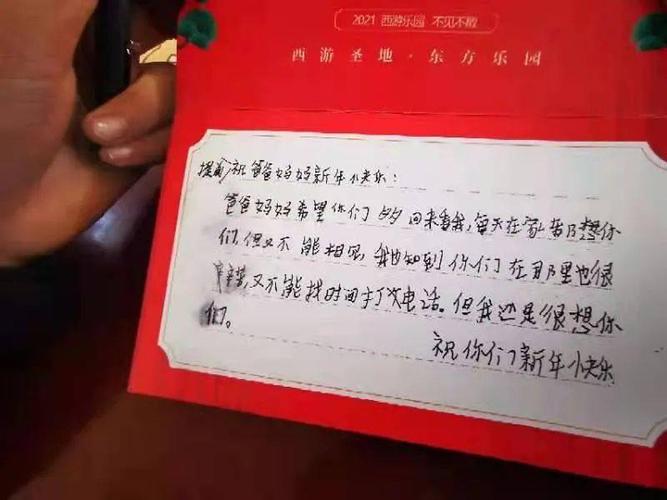 2021 西游乐园 不见不散
西游圣地·东方乐园
提前祝爸爸妈妈新年快乐：
爸爸妈妈希望你们 多 回来看我，每天在家 都 想你
们，但又不能相见，我也知道你们在那里也很
辛苦，又不能找时间打次电话。但我还是很想你
们。
祝你们新年快乐